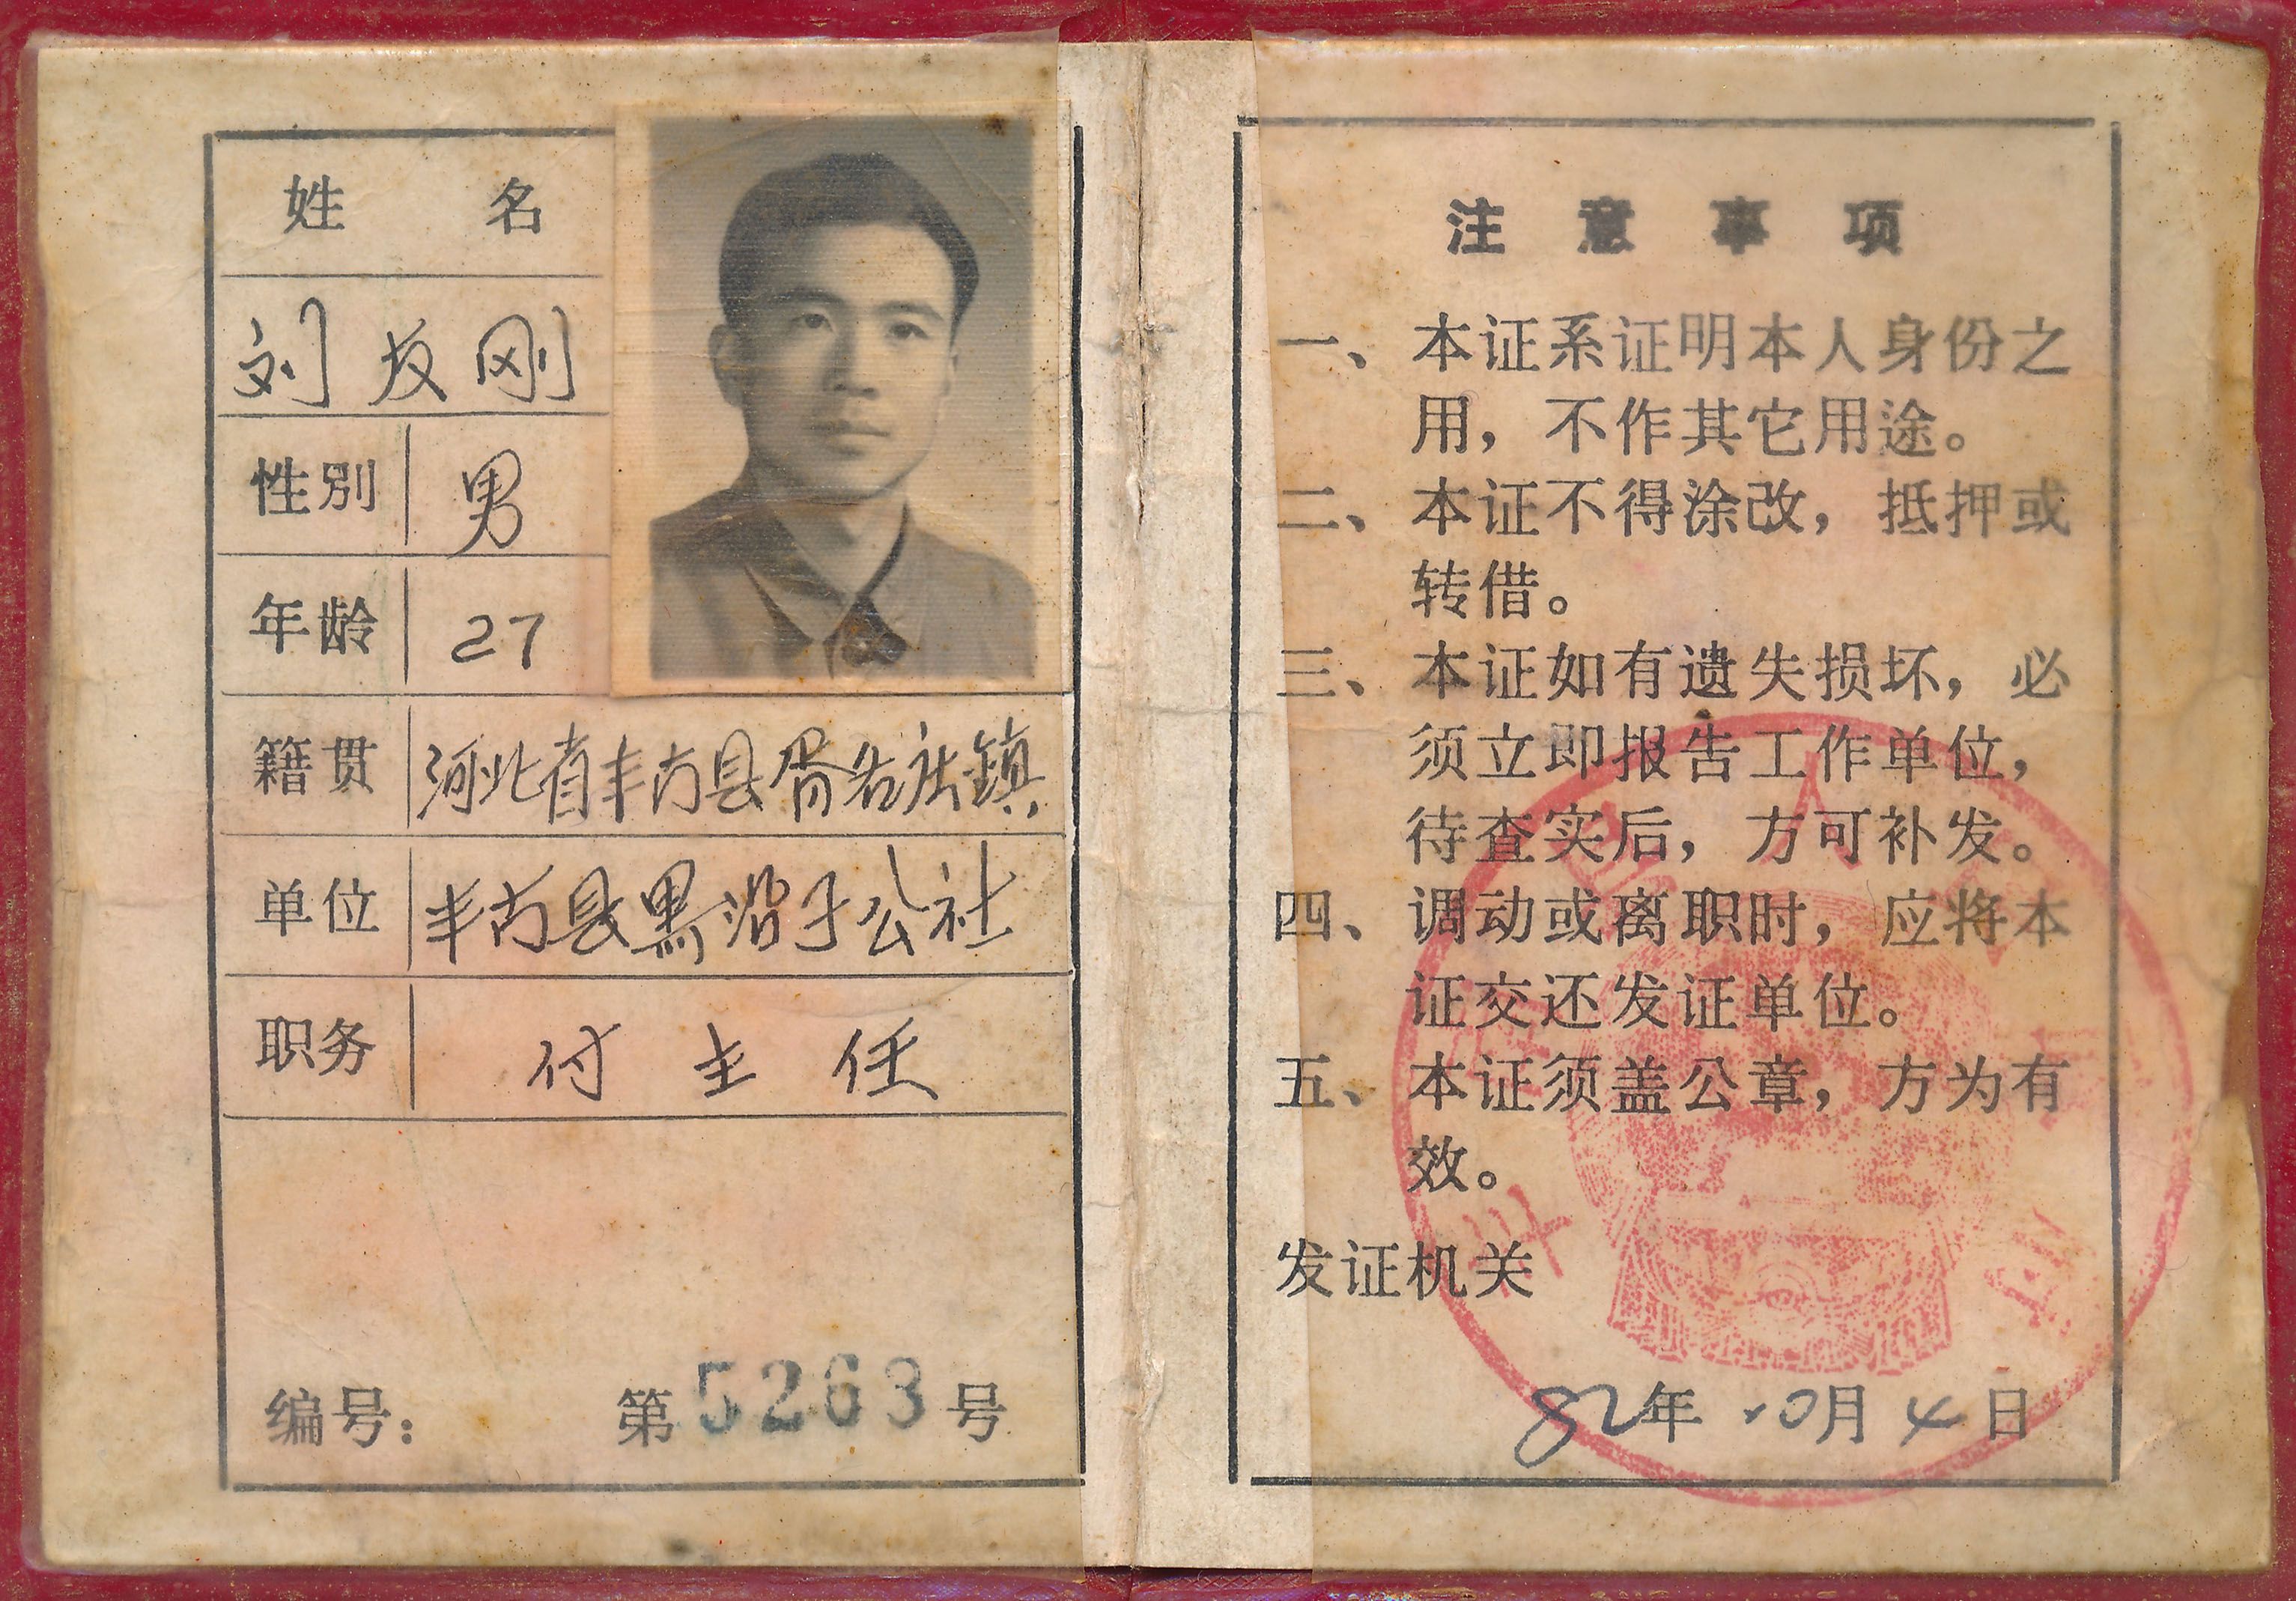 姓名
刘友刚
性别 男
年龄 27
籍贯 河北省丰南县胥各庄鎮
单位 丰南县黑沿子公社
职务 付主任
编号： 第5263号
注意事项
一、本证系证明本人身份之
用，不作其它用途。
二、本证不得涂改，抵押或
转借。
三、本证如有遗失损坏，必
须立即报告工作单位，
待查实后，方可补发。
四、调动或离职时，应将本
证交还发证单位。
五、本证须盖公章，方为有
效。
发证机关
82年10月4日